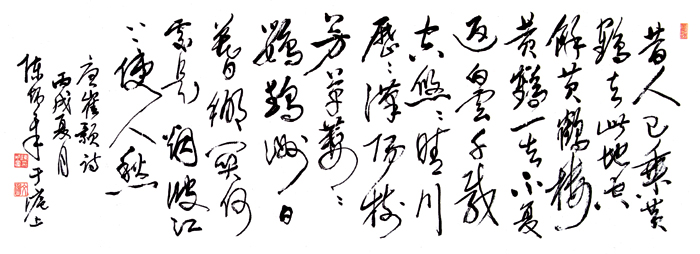 昔人已乘黄
鶴去此地空
餘黄鶴樓
黄鶴一去不复
返白雲千載
空悠悠晴川
歷歷漢陽樹
芳草萋萋
鸚鵡洲日
暮鄉關何
處是烟波江
上使人愁
唐崔顥詩
丙戌夏月
陳 于滬上